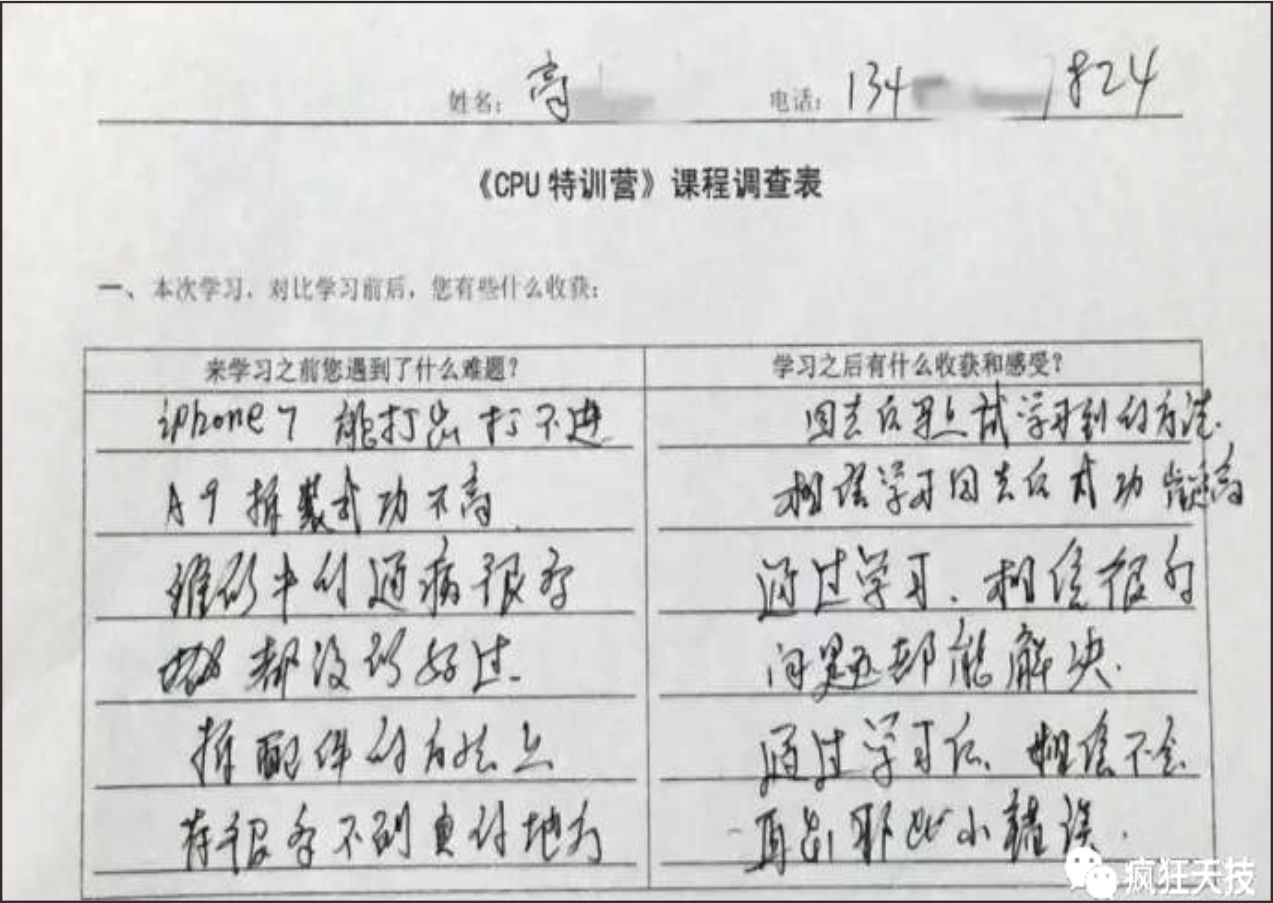 姓名: 高 电话: 134 1824
《CPU 特训营》课程调查表
一、本次学习,对比学习前后,您有些什么收获:
来学习之前您遇到了什么难题? 学习之后有什么收获和感受?
iphone 7 能打出打不进 回去后 试学习到的方法.
A9 拆装成功不高. 相信学习回去后成功 高
维修中的通病很多 通过学习.相信很多
都没修好过. 问题都能解决.
拆配件的方法上 通过学习后、相信不会
有很多不到位的地方 再出那些小错误.
疯狂天技